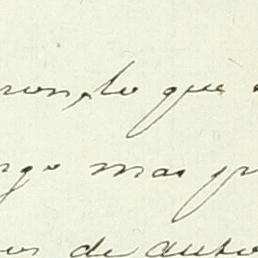 ron, lo que
rgo mas p
os de auto